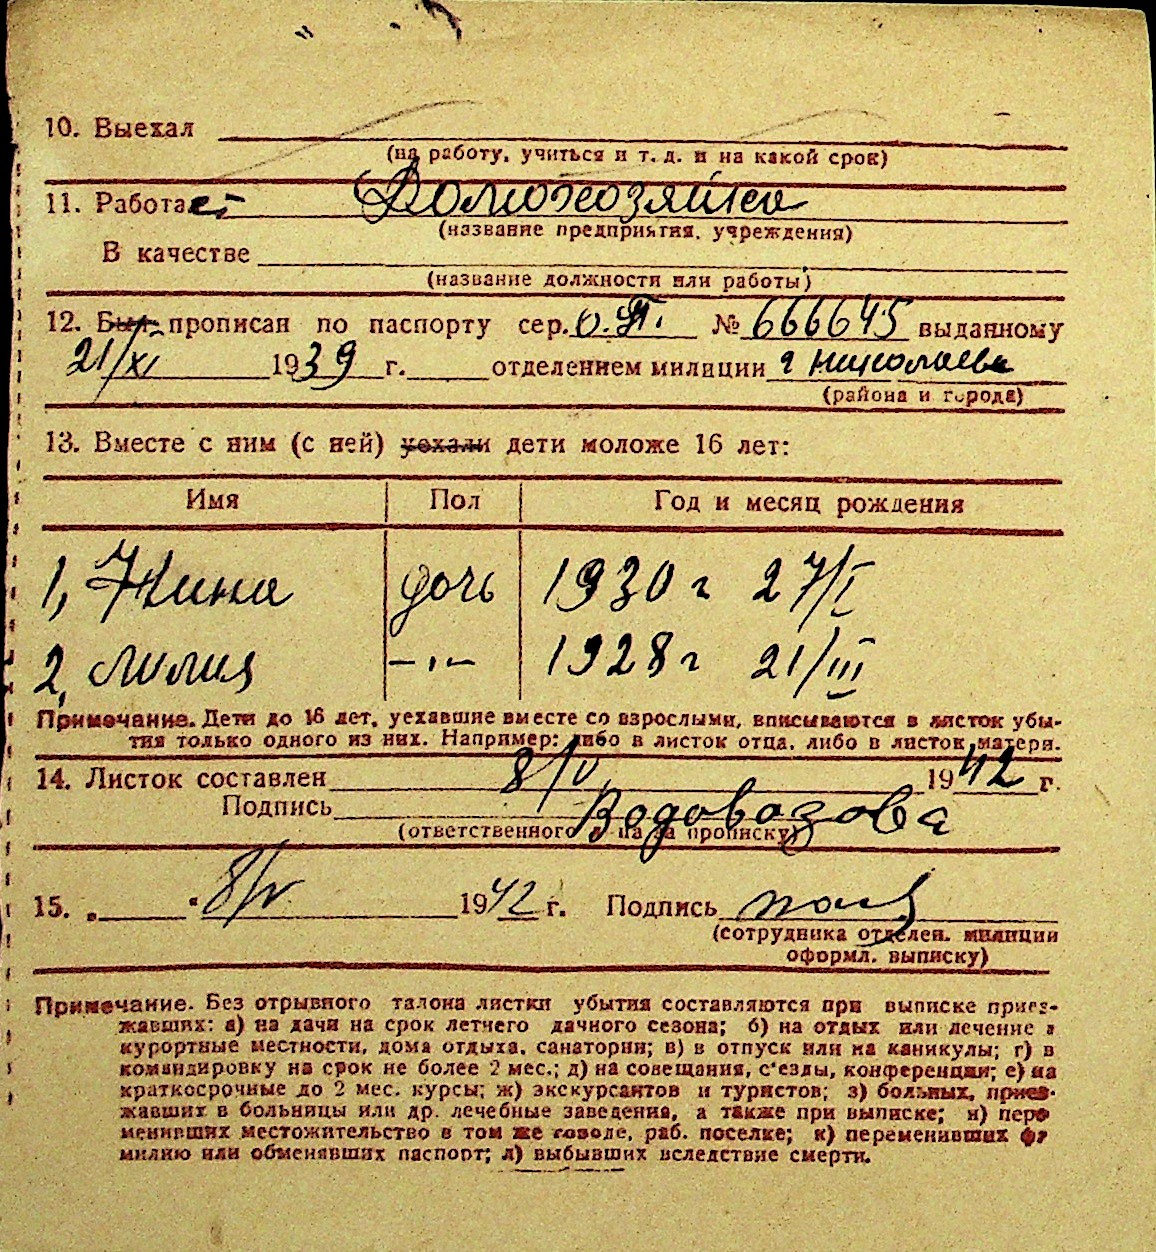 10. Выехал
(на работу, учиться и т. д. и на какой срок)
11. Работает Домохозяйка
(название предприятия, учреждения)
В качестве
(название должности или работы)
12. Был прописан по паспорту сер. № 666645 выданному
21/XI 1939 г. отделением милиции г Николаева
(района и города)
13. Вместе с ним (с ней) уехали дети моложе 16 лет:
Имя Пол Год и месяц рождения
1, Нина дочь 1930 г 27/I
2, Лилия -"- 1928 г 21/III
Примечание. Дети до 16 лет, уехавшие вместе со взрослыми, вписываются в листок убы-
тия только одного из них. Например: либо в листок отца, либо в листок матери.
14. Листок составлен 8/V 1942 г.
Подпись Водовозова
(ответственного лица за прописку)
15. „ " 8/V 1942 г. Подпись
(сотрудника отделен. милиции
оформл. выписку)
Примечание. Без отрывного талона листки убытия составляются при выписке приез-
жавших: а) на дачи на срок летнего дачного сезона; б) на отдых или лечение в
курортные местности, дома отдыха, санатории; в) в отпуск или на каникулы; г) в
командировку на срок не более 2 мес.; д) на совещания, с'езды, конференции; е) на
краткосрочные до 2 мес. курсы; ж) экскурсантов и туристов; з) больных, приез-
жавших в больницы или др. лечебные заведения, а также при выписке; и) пере
менивших местожительство в том же городе, раб. поселке; к) переменивших фа
милию или обменявших паспорт; л) выбывших вследствие смерти.